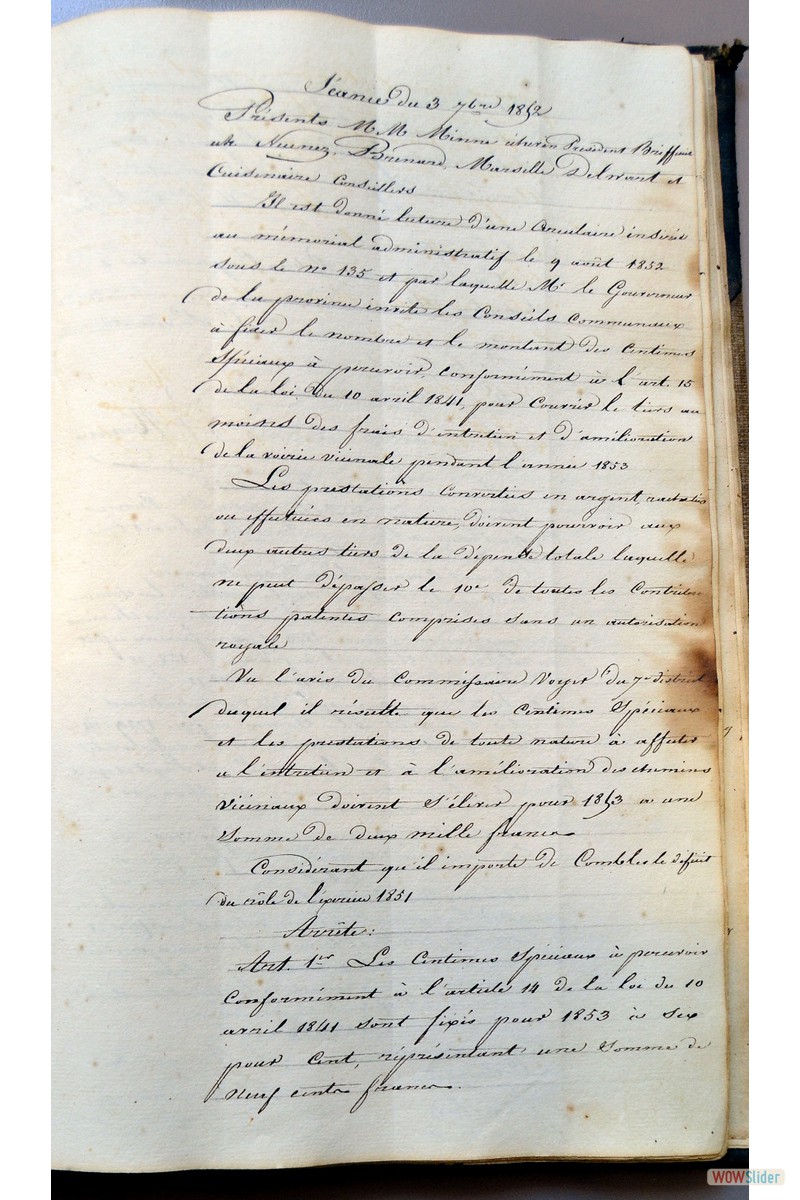 Séance du 3 7bre 1852
Présents MM Minne échevin Président Briffeuil
Nuenez, Brenard, Marseille Delwart et
Cuisenaire Conseillers
Il est donné lecture d'une Circulaire insérée
au mémorial administratif le 9 août 1852
sous le no 135 et par laquelle Mr le Gouverneur
de la province invite les Conseils communaux
à fixer le nombre et le montant des Centimes
Spéciaux à percevoir conformément à l'art. 15
de la loi, du 10 avril 1841, pour Couvrir le tiers au
moins des frais d'entretien et d'amélioration
de la voirie vicinale pendant l'année 1853
Les prestations converties en argent, rachetées
ou effectuées en nature, doivent pourvoir aux
deux autres tiers de la dépense totale laquelle
ne peut dépasser le 10e de toutes les Contribu
tions patentes comprises sans un autorisation
royale
Vu l'avis du Commissaire Voyer du 7e district
duquel il résulte que les Centimes Spéciaux
et les prestations de toute nature à affecter
a l'entretien et à l'amélioration des chemins
Vicinaux doivent S'élever pour 1853 a une
Somme de deux mille francs
Considérant qu'il importe de Combler le déficit
du rôle de l'exercice 1851
Arrête:
Art. 1er Les Centimes Spéciaux à percevoir
Conformément à l'article 14 de la loi du 10
avril 1841 sont fixés pour 1853 à Six
pour Cent, réprésentant une Somme de
Neuf cents francs.
WOWSlider